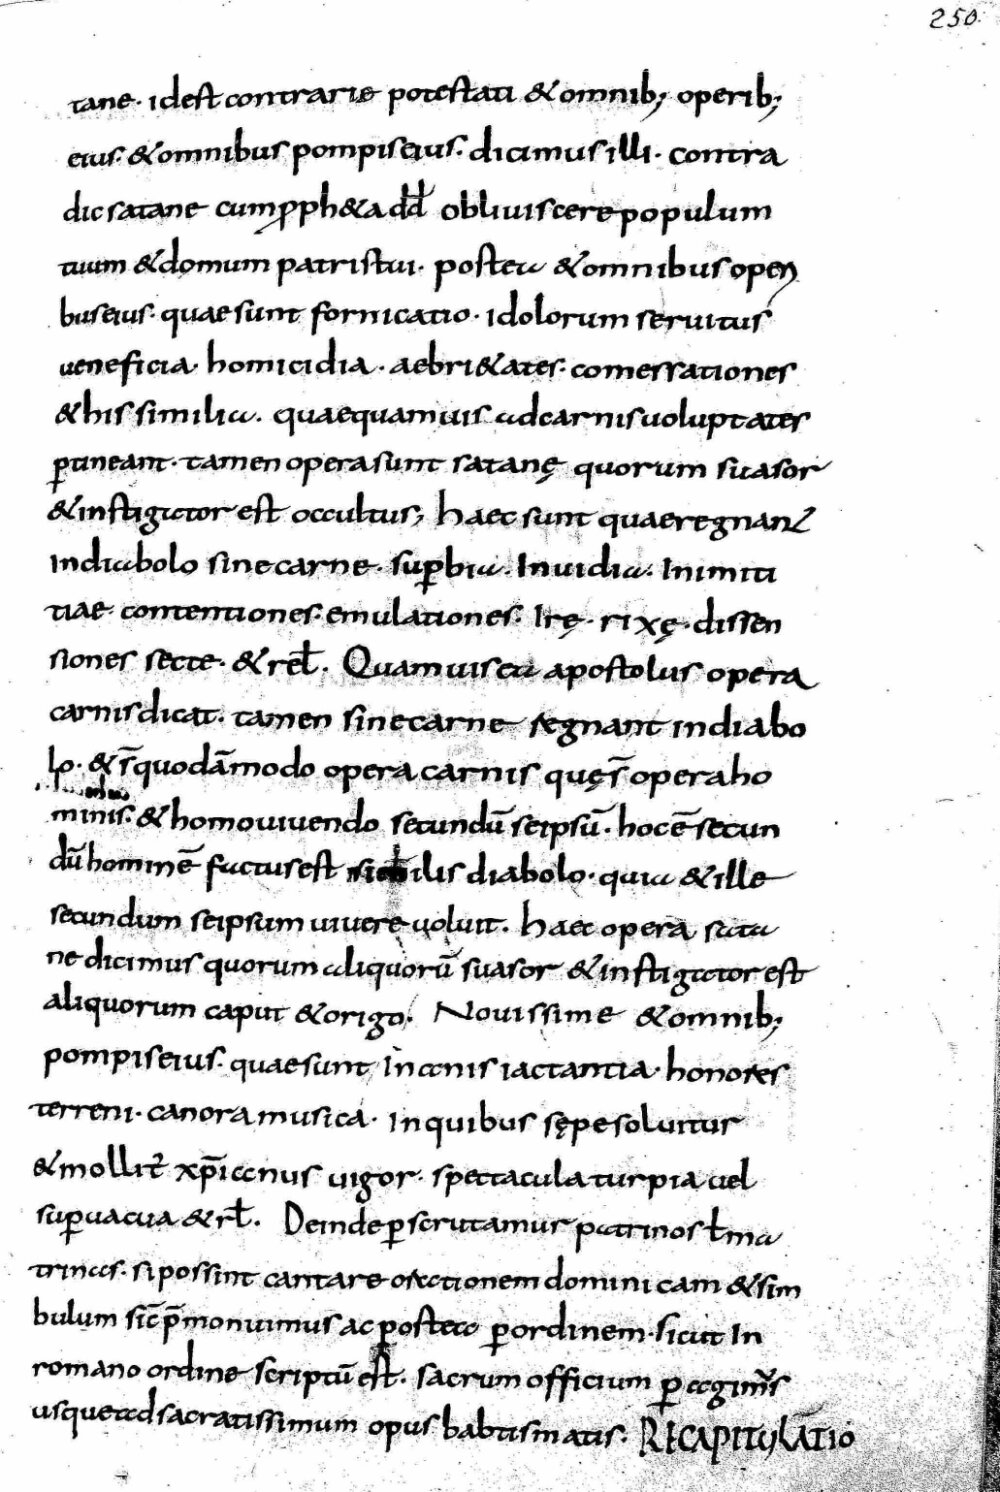 250.
tane· id est contrarie potestati & omnib; operib;
eius· & omnibus pompis eius· dicimus illi· contra
dic satane cum ꝓph&a dd̄ obliuiscere populum
tuum & domum patris tui· postea & omnibus operi
bus eius· quae sunt fornicatio· idolorum seruitus
ueneficia· homicidia· aebri&ates· comessationes
& his similia· quae quamuis ad carnis uoluptates
ꝑtineant· tamen opera sunt satanę quorum suasor
& instigator est occultus; haec sunt quae regnant
In diabolo sine carne· suꝑbia· Inuidia· Inimici
tiae· contentiones· emulationes· Irę· rixę· dissen
siones secte· & rel̄· Quamuis ea apostolus opera
carnis dicat· tamen sine carne regnant in diabo
lo· & s̄ quodāmodo opera carnis quę s̄ opera ho
minis· & homo uiuendo secundū seipsū· hoc ē secun
dū hominē factus est similis diabolo· quia & ille
secundum seipsum uiuere uoluit· haec opera sata
ne dicimus quorum aliquorū suasor & instigator est
aliquorum caput & origo· Nouissime & omnib;
pompis eius· quae sunt Inanis iactantia· honores
terreni· canora musica· In quibus sępe soluitur
& mollit̄ xp̄ianus uigor· spectacula turpia uel
suꝑuacua & rl̄· Deinde ꝑscrutamur patrinos l̄ ma
trinas· si possint cantare orationem dominicam & sim
bulum sic̄ p̄monuimus ac ꝑ postea ꝑ ordinem· sicut In
romano ordine scriptū est· sacrum officium ꝑagim̄s
usque ad sacratissimum opus babtismatis· RECAPITULATIO